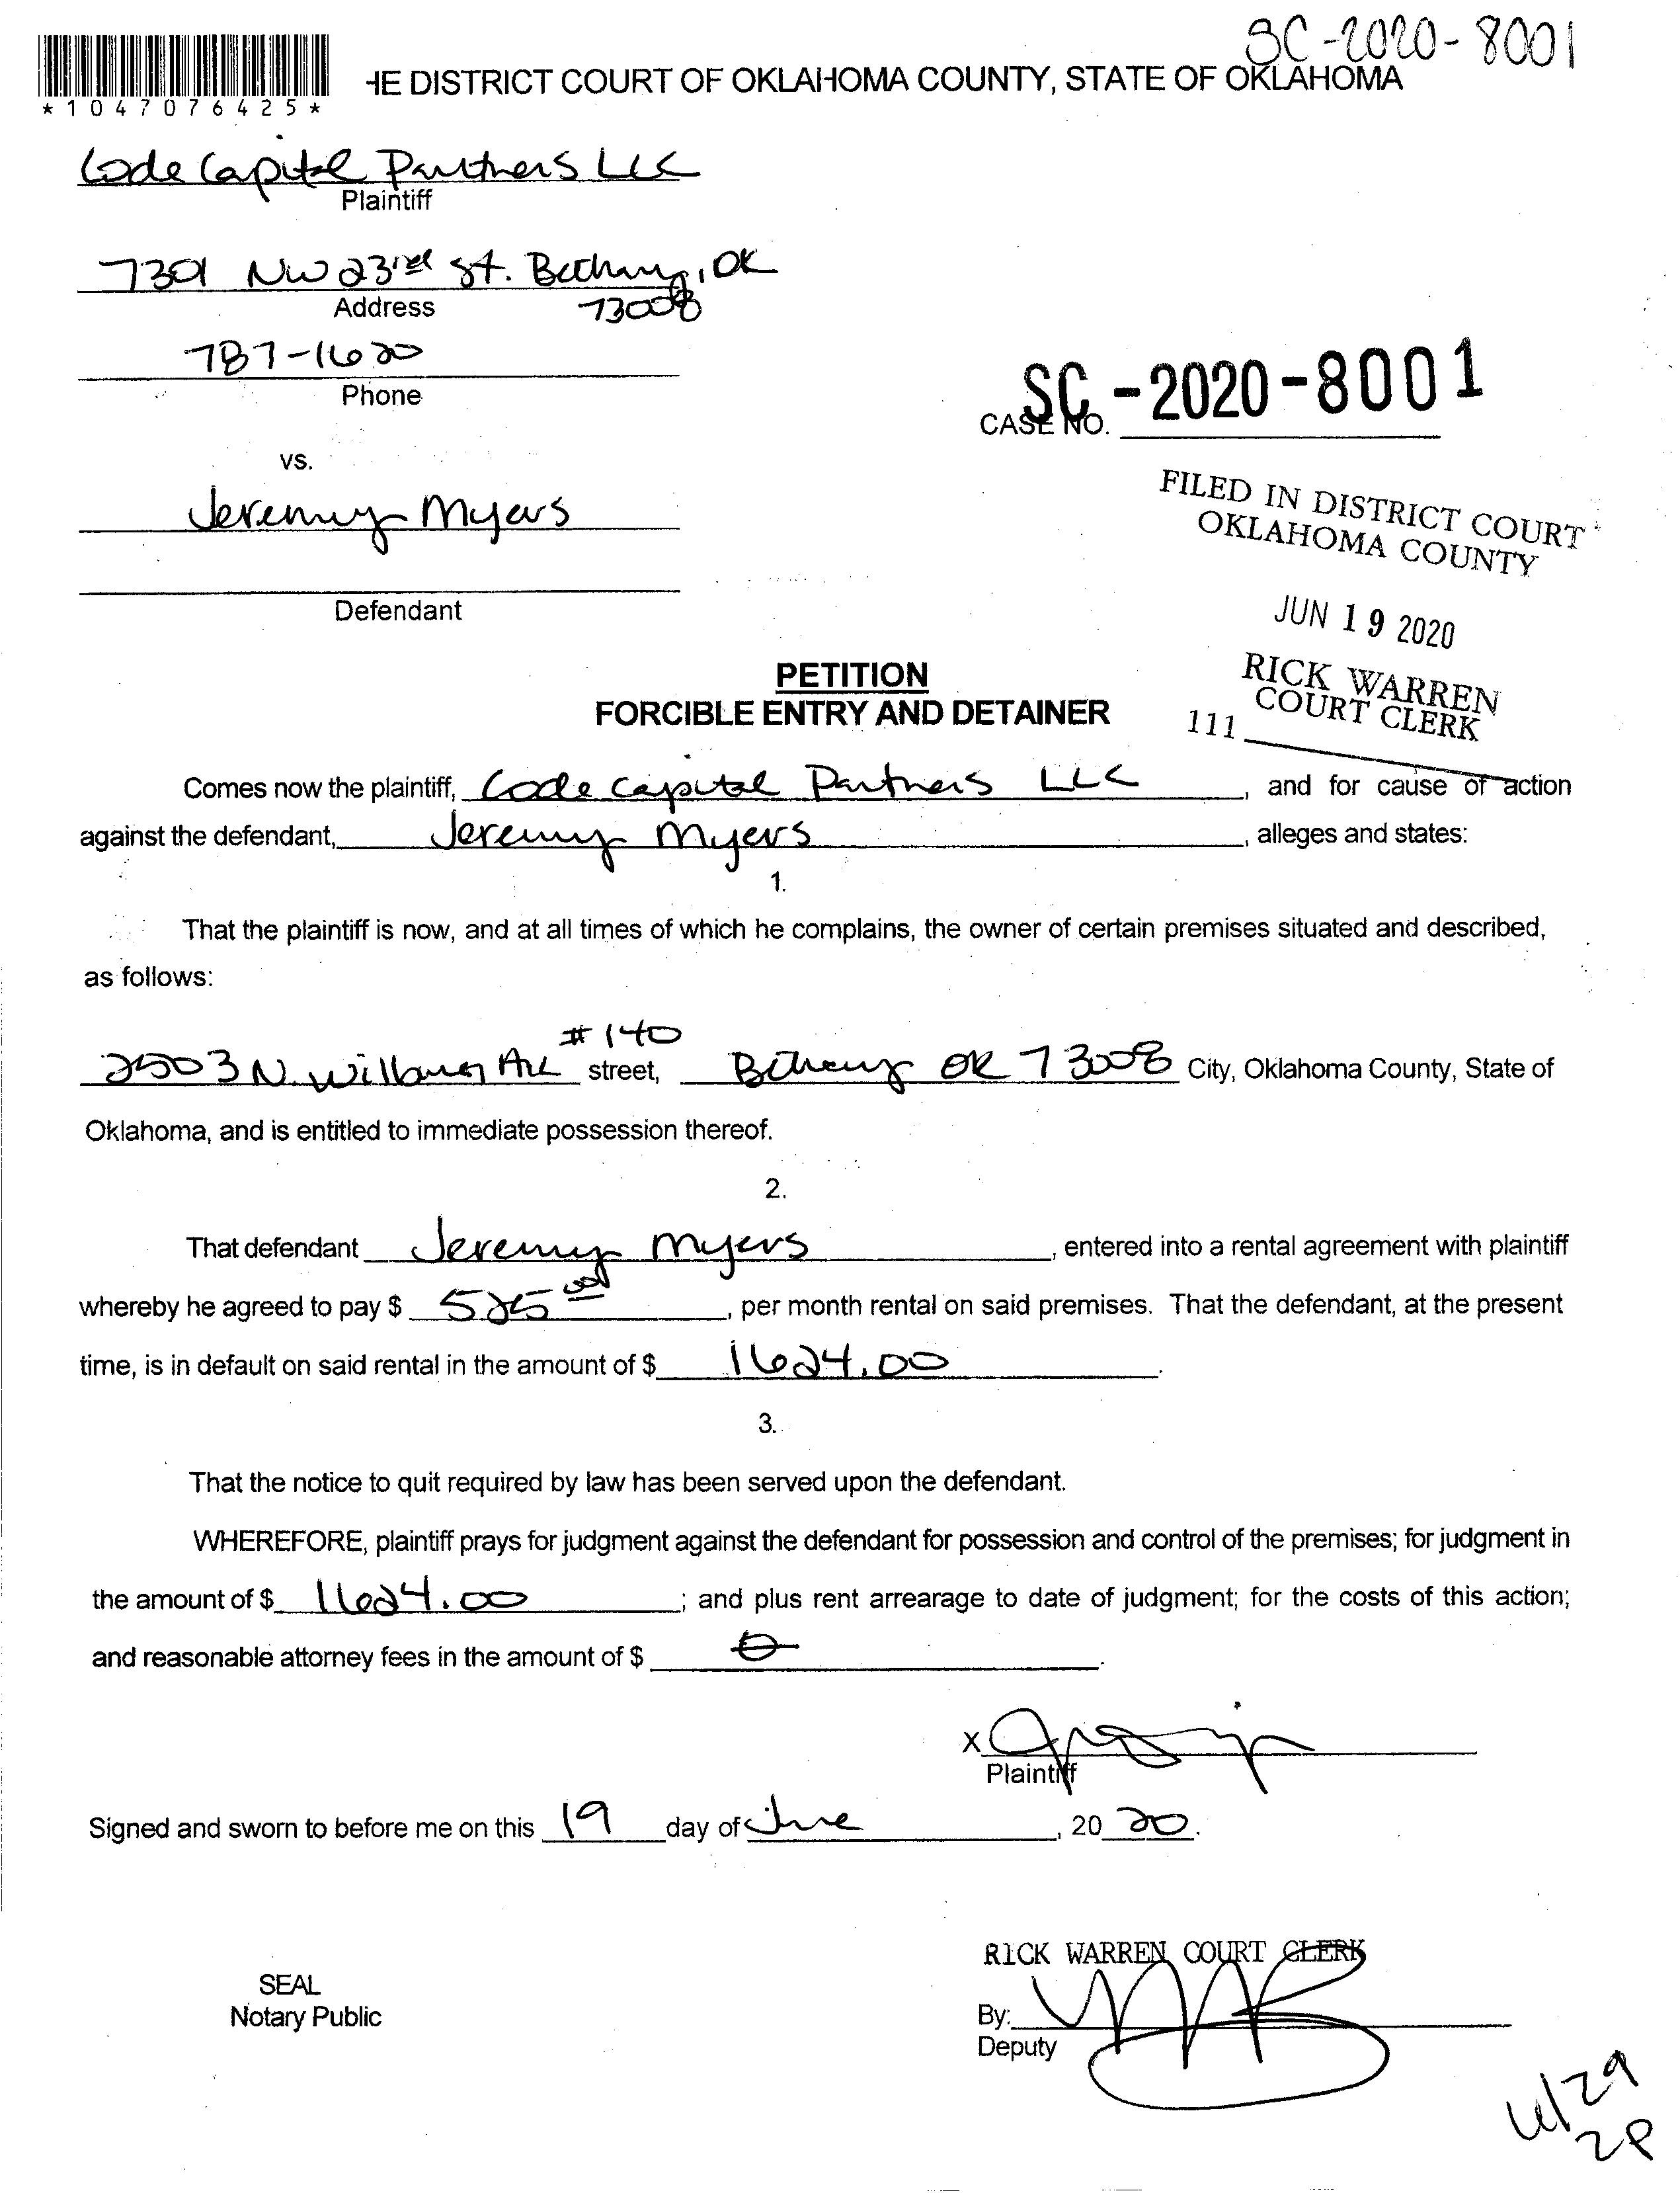 SC-2020-8001
HE DISTRICT COURT OF OKLAHOMA COUNTY, STATE OF OKLAHOMA
*1047076425*
Code Capital Partners LLC
Plaintiff
7301 NW 23rd St. Bethany, OK
Address 73008
787-1620
Phone
SC-2020-8001
CASE NO.
vs.
Jeremy Myers
FILED IN DISTRICT COURT
OKLAHOMA COUNTY
Defendant
JUN 19 2020
RICK WARREN
COURT CLERK
111
PETITION
FORCIBLE ENTRY AND DETAINER
Comes now the plaintiff, Code Capital Partners LLC, and for cause of action
against the defendant, Jeremy Myers, alleges and states:
1.
That the plaintiff is now, and at all times of which he complains, the owner of certain premises situated and described,
as follows:
#140
2503 N. Willbur Ave street, Bethany OK 73008 City, Oklahoma County, State of
Oklahoma, and is entitled to immediate possession thereof.
2.
That defendant Jeremy Myers, entered into a rental agreement with plaintiff
whereby he agreed to pay $ 525 00, per month rental on said premises. That the defendant, at the present
time, is in default on said rental in the amount of $ 1624.00.
3.
That the notice to quit required by law has been served upon the defendant.
WHEREFORE, plaintiff prays for judgment against the defendant for possession and control of the premises; for judgment in
the amount of $ 1624.00; and plus rent arrearage to date of judgment; for the costs of this action;
and reasonable attorney fees in the amount of $ 0.
X
Plaintiff
Signed and sworn to before me on this 19 day of June, 20 20.
RICK WARREN COURT CLERK
SEAL
Notary Public
By:
Deputy
6/29
2P